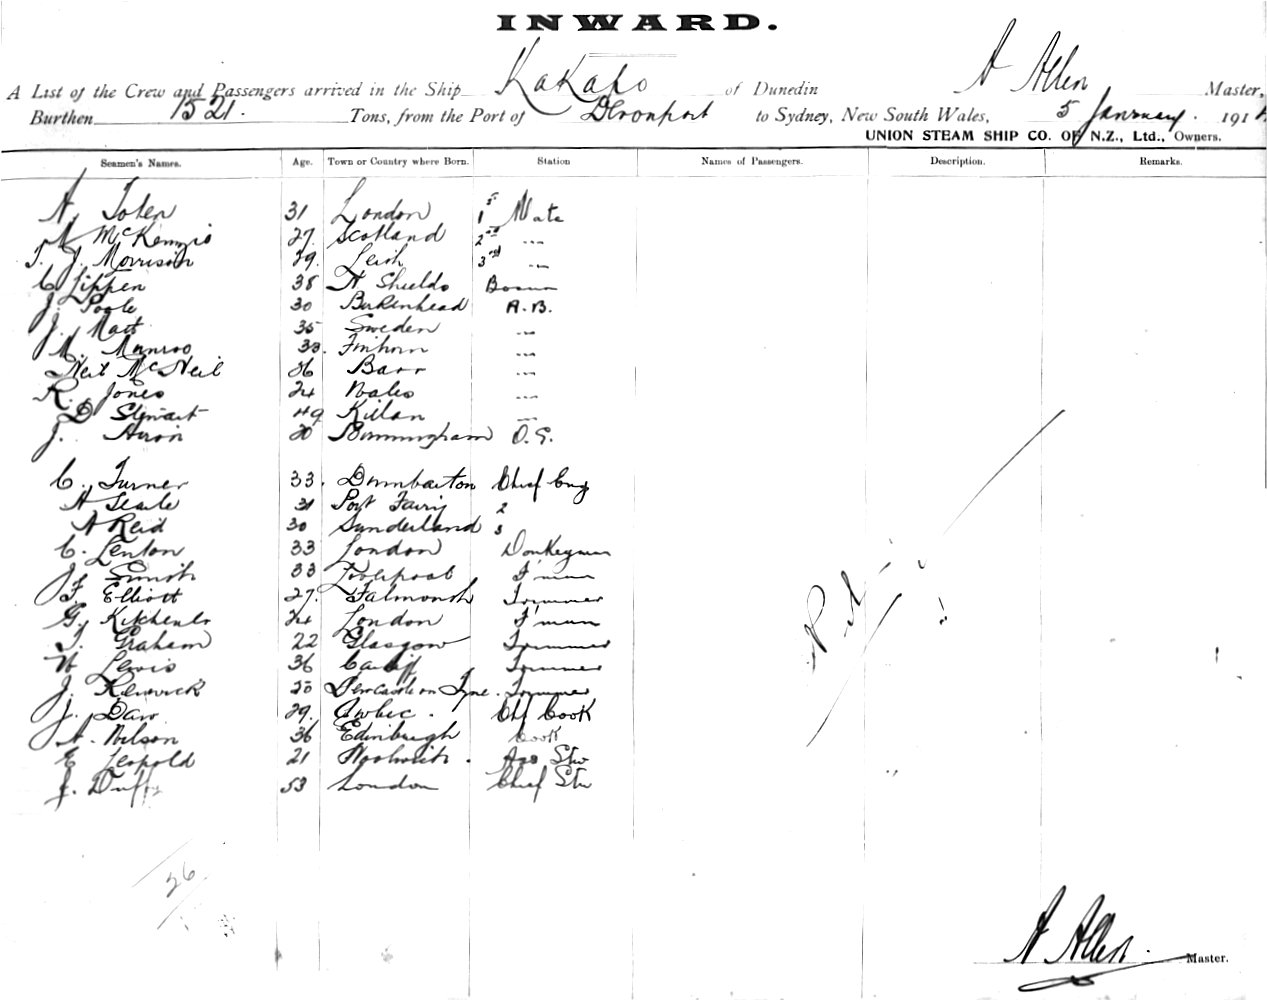 INWARD.
A List of the Crew and Passengers arrived in the Ship Kakapo of Dunedin A Allen Master,
Burthen 1521. Tons, from the Port of Devonport to Sydney, New South Wales, 5 January. 191
UNION STEAM SHIP CO. OF N.Z., Ltd., Owners.
Seamen's Names. Age. Town or Country where Born. Station Names of Passengers. Description. Remarks.
A. 31 London 1st Mate
McKenzie 27. Scotland 2nd "
T. J. Morrison 29. Leith 3rd "
C Lippen 38 N Shields Bosun
J. Poole 30 Birkenhead A.B.
J. Matt 35 Sweden "
M. Munroo 33. Finhorn "
Neil McNeil 26 Barr "
R. Jones 24 Wales "
D Stewart 49 Killan "
J. 20 Birmingham O.S.
C. Turner 33. Dumbarton Chief Eng
A 31 Port Fairy 2
A Reid 30 Sunderland 3
C. Lenton 33 London Donkeyman
J. Smith 33 Liverpool F'man
F. Elliott 27. Falmouth Trimmer
G. Kitchener 24 London F'man
T. Graham 22 Glasgow Trimmer
W Lewis 36 Cardiff Trimmer
J. Renwick 25 Newcastle on Tyne. Trimmer
J. Daw 29. Chf Cook
A. Wilson 36 Edinburgh Cook
E Leopold 21 Woolwich. Ass Stw
J. Duffy 53 London Chief Stw
26
A Allen Master.